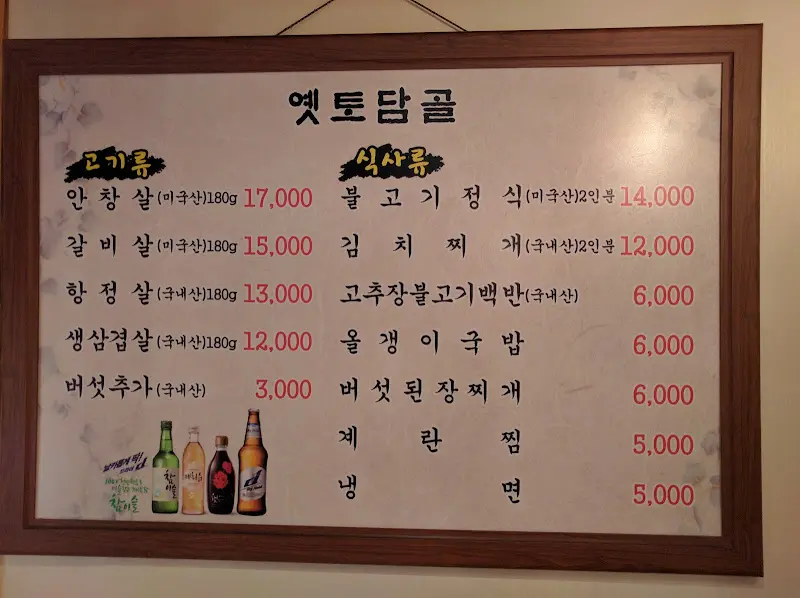 옛토담골
고기류
안창살(미국산)180g 17,000
갈비살(미국산)180g 15,000
항정살(국내산)180g 13,000
생삼겹살(국내산)180g 12,000
버섯추가(국내산) 3,000
식사류
불고기정식(미국산)2인분 14,000
김치찌개(국내산)2인분 12,000
고추장불고기백반(국내산) 6,000
올갱이국밥 6,000
버섯된장찌개 6,000
계란찜 5,000
냉면 5,000
참이슬
참이슬